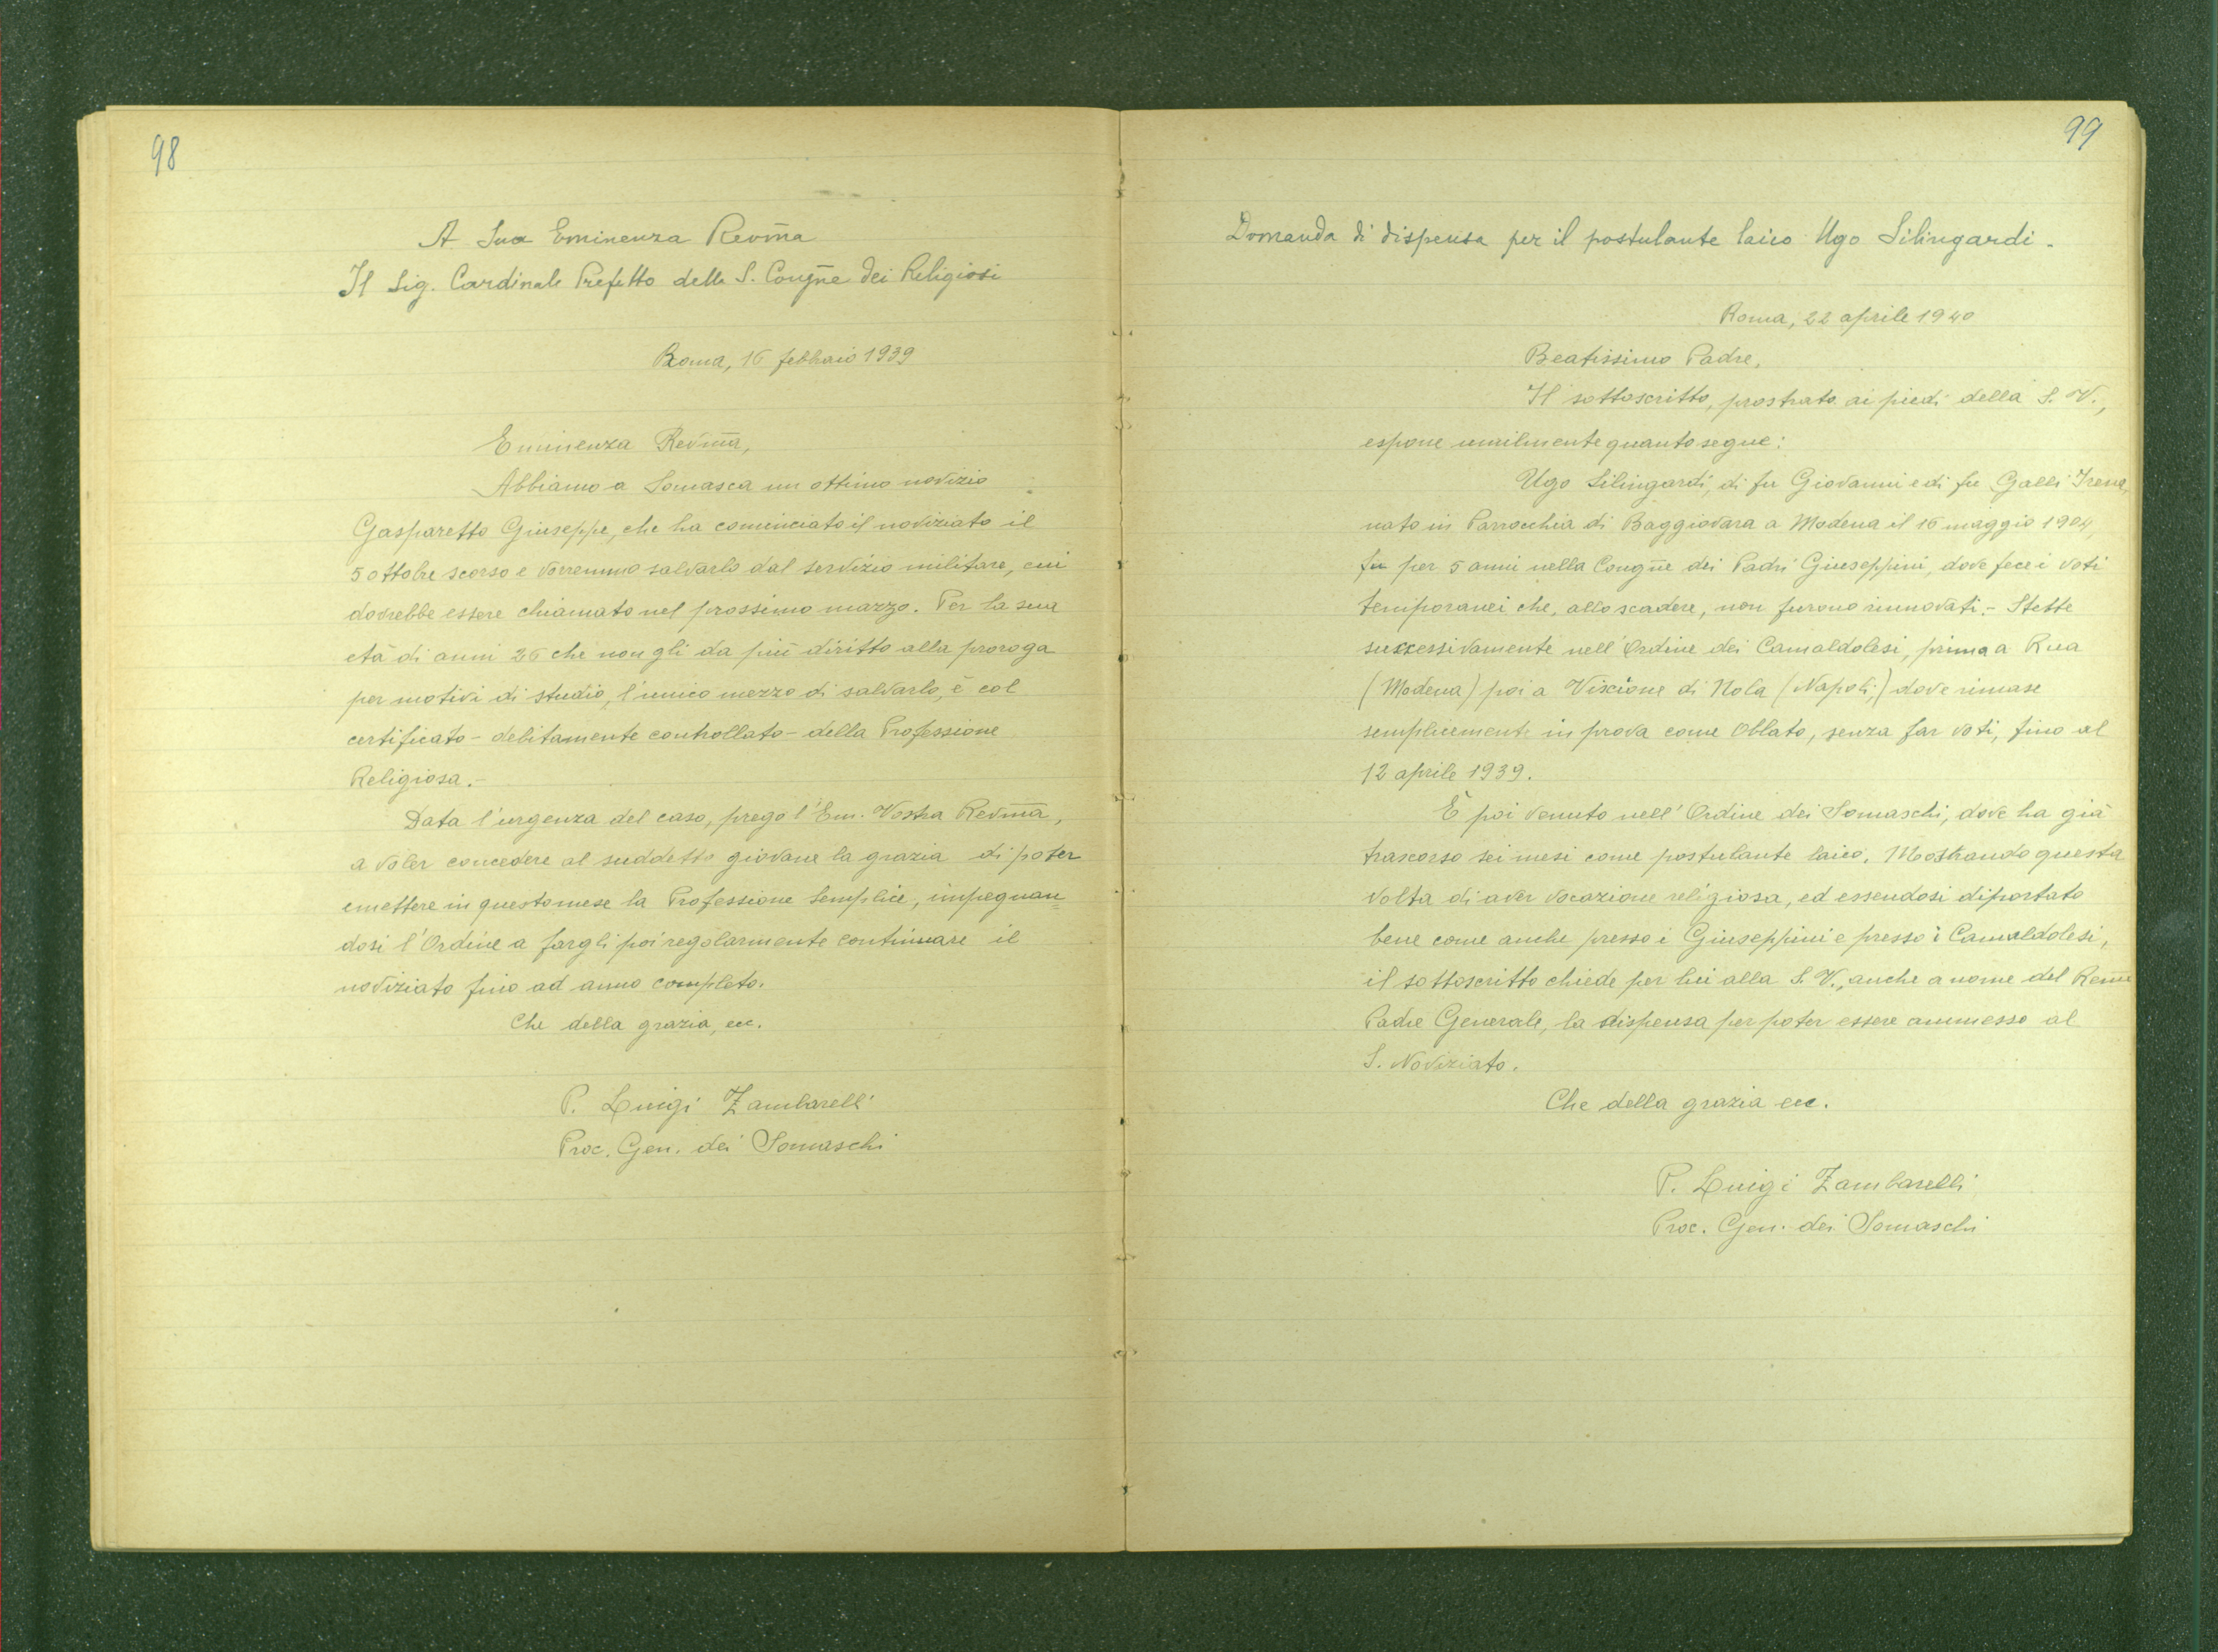 98
A Sua Eminenza Revm̄a
Il Sig. Cardinale Prefetto della S. Cougn̄e dei Religiosi
Roma, 16 febbraio 1939
Eminenza Revm̄a,
Abbiamo a Somasca un ottimo novizio
Gasparetto Giuseppe, che ha cominciato il noviziato il
5 ottobre scorso e vorremmo salvarlo dal servizio militare, cui
dovrebbe essere chiamato nel prossimo marzo. Per la sua
età di anni 26 che non gli da più diritto alla proroga
per motivi di studio, l'unico mezzo di salvarlo, è col
certificato - debitamente controllato - della Professione
Religiosa.-
Data l'urgenza del caso, prego l'Em. Vostra Revm̄a,
a voler concedere al suddetto giovane la grazia di poter
emettere in questo mese la Professione Semplice, impegnan=
dosi l'Ordine a fargli poi regolarmente continuare il
noviziato fino ad anno completo.
Che della grazia, ecc.
P. Luigi Zambarelli
Proc. Gen. dei Somaschi
99
Domanda di dispensa per il postulante laico Ugo Silingardi.
Roma, 22 aprile 1940
Beatissimo Padre,
Il sottoscritto, prostrato ai piedi della S. V.,
espone umilmente quanto segue:
Ugo Silingardi, di fu Giovanni e di fu Galli Irena,
nato in Parrocchia di Baggiovara a Modena il 16 maggio 1904,
fu per 5 anni nella Congn̄e dei Padri Giuseppini, dove fece i voti
temporanei che, allo scadere, non furono rinnovati.- Stette
successivamente nell'Ordine dei Camaldolesi, prima a Rua
(Modena) poi a Viscione di Nola (Napoli;) dove rimase
semplicemente in prova come Oblato, senza far voti, fino al
12 aprile 1939.
È poi venuto nell'Ordine dei Somaschi, dove ha già
trascorso sei mesi come postulante laico. Mostrando questa
volta di aver vocazione religiosa, ed essendosi diportato
bene come anche presso i Giuseppini e presso i Camaldolesi,
il sottoscritto chiede per lui alla S. V., anche a nome del
Padre Generale, la dispensa per poter essere ammesso al
S. Noviziato.
Che della grazia ecc.
P. Luigi Zambarelli
Proc. Gen. dei Somaschi